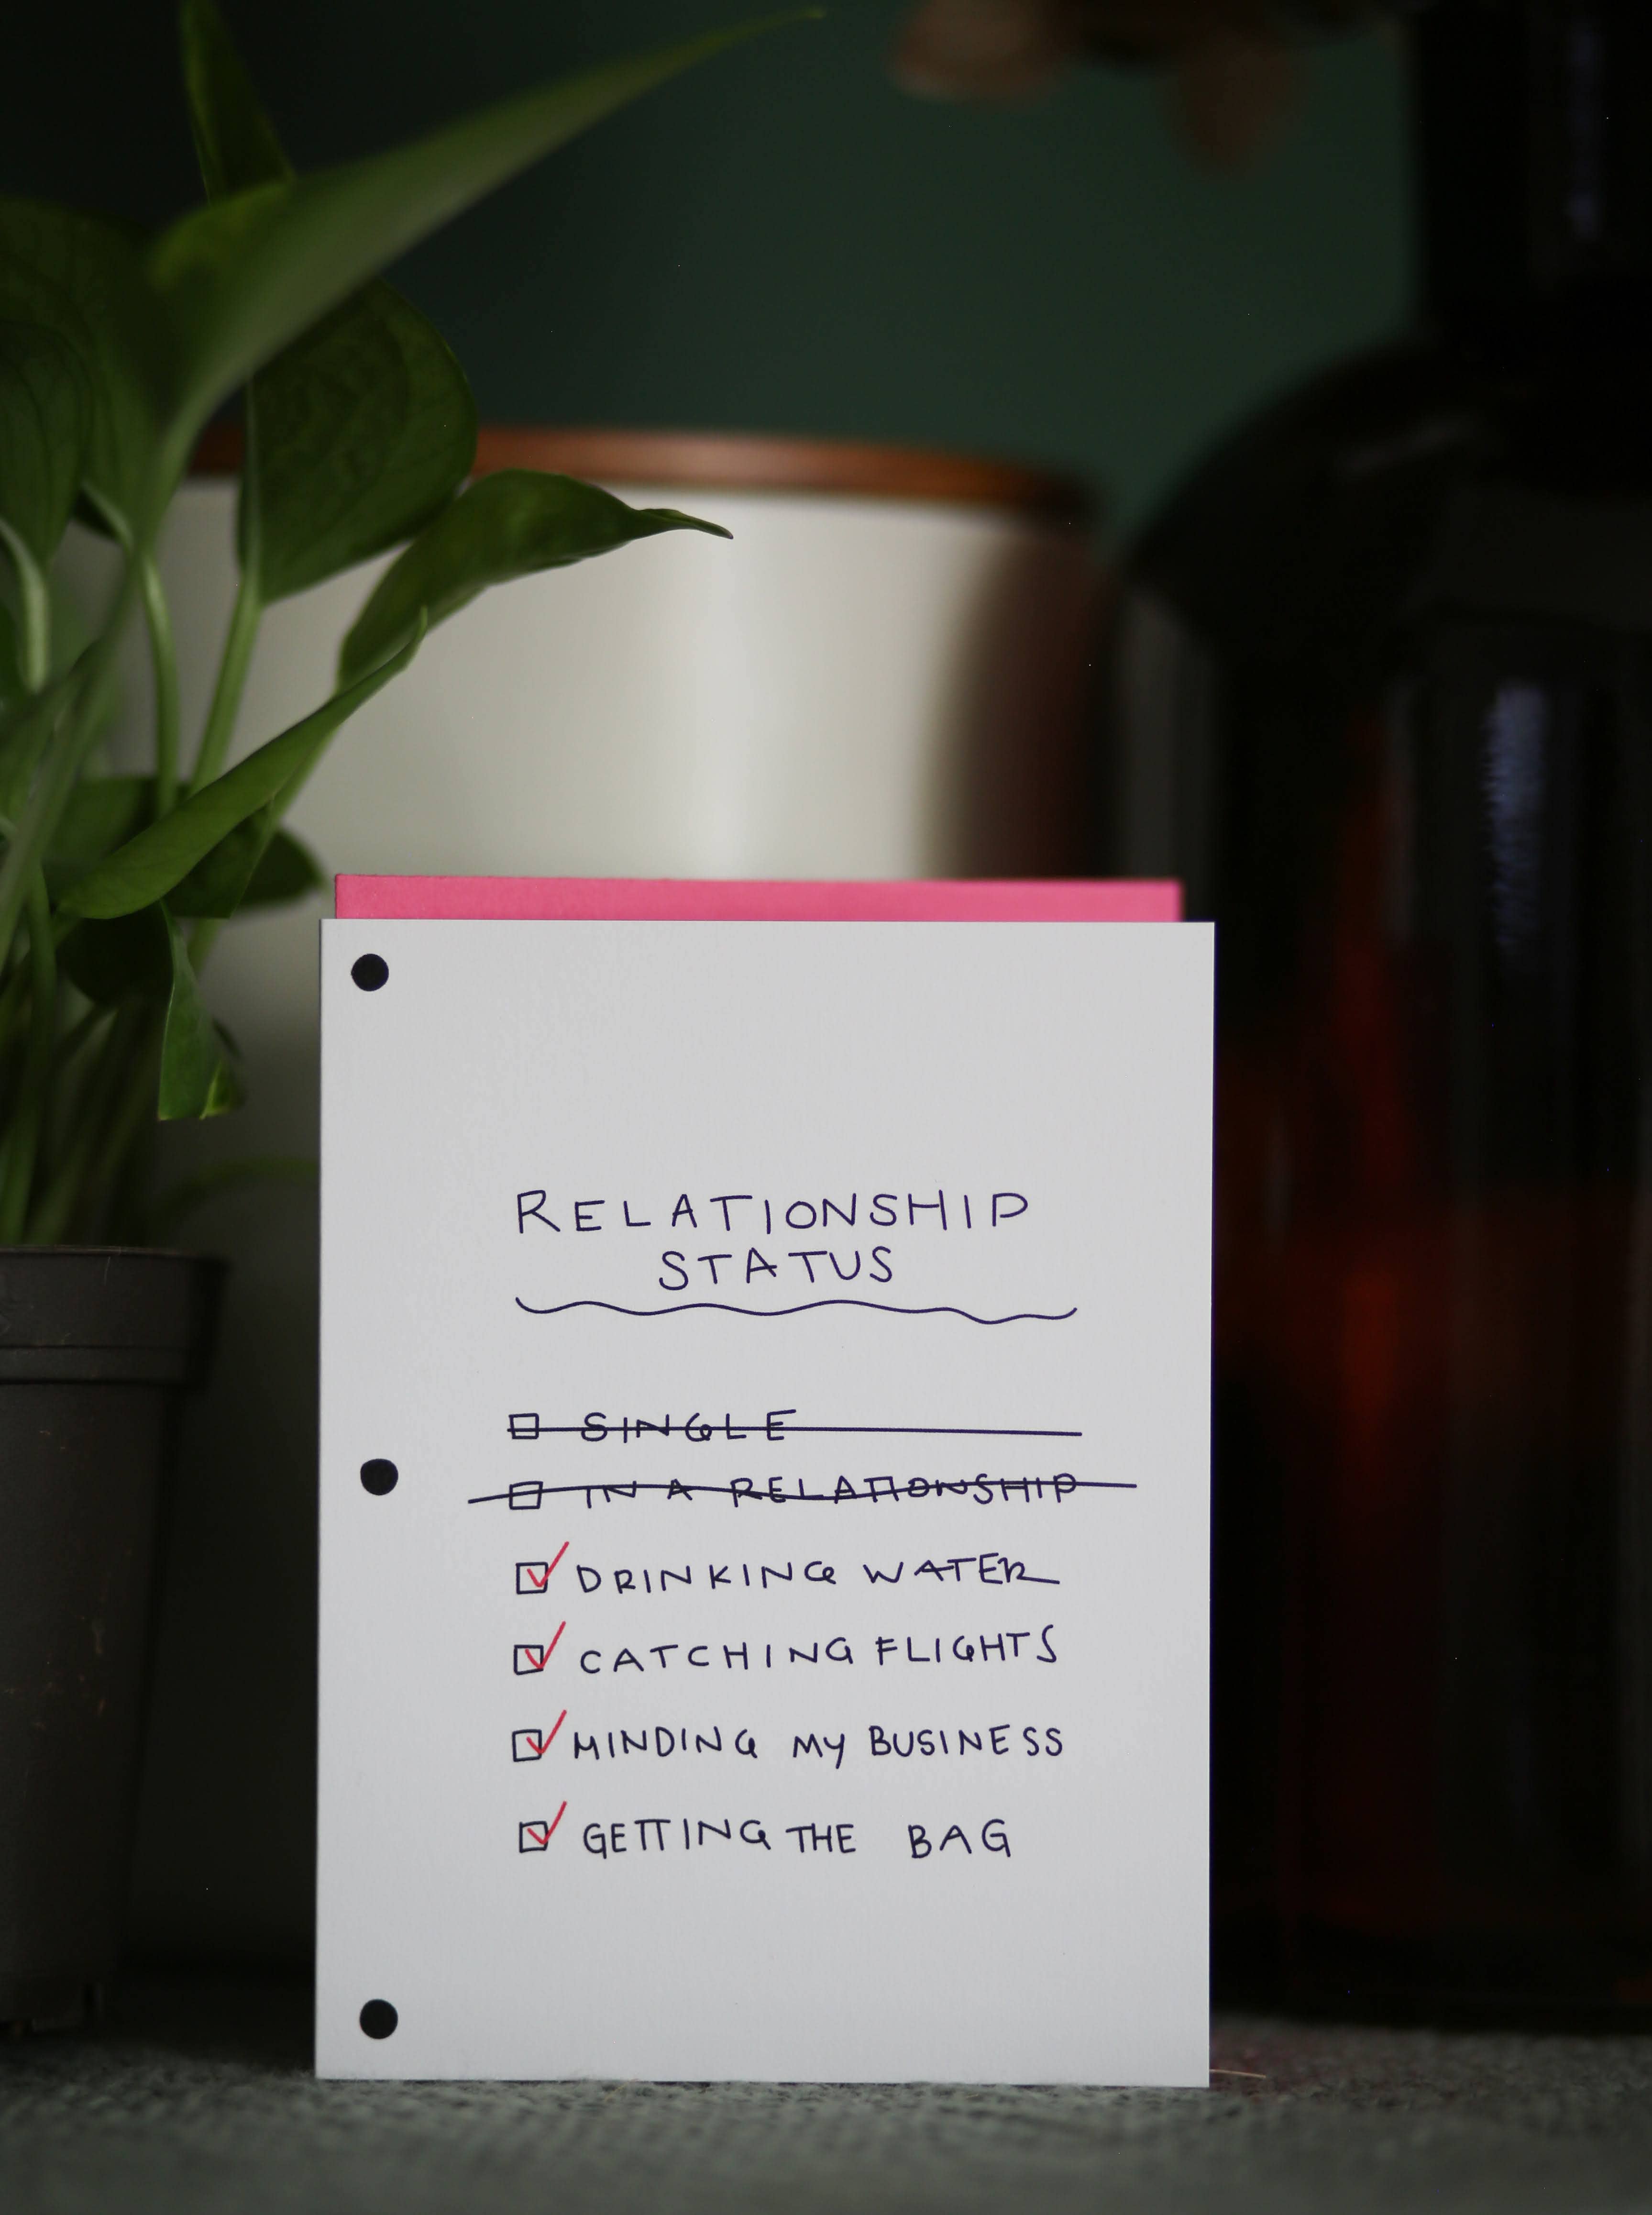 RELATIONSHIP
STATUS
SINGLE
IN A RELATIONSHIP
DRINKING WATER
CATCHING FLIGHTS
MINDING MY BUSINESS
GETTING THE BAG